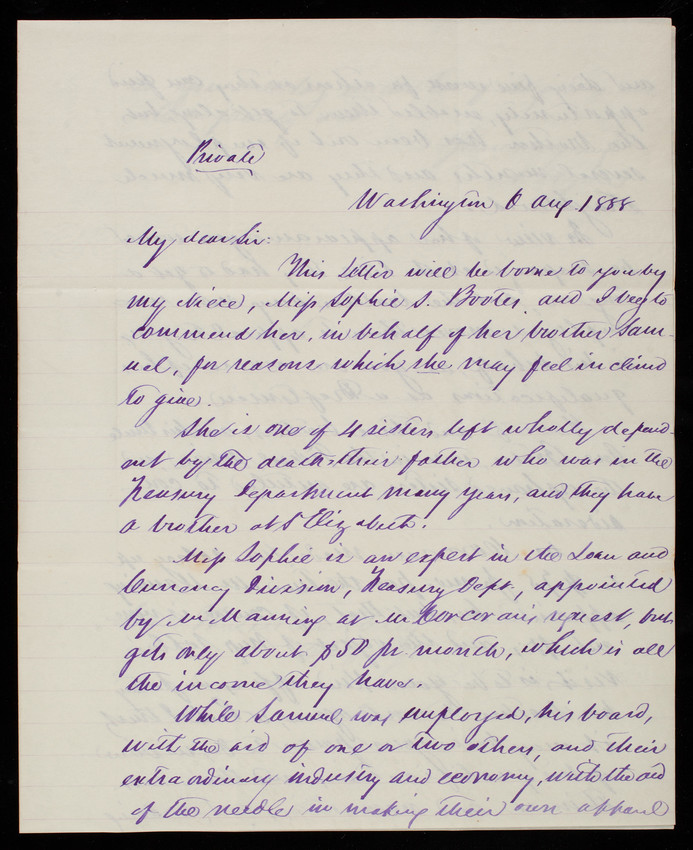 Private
Washington 6 Aug. 1888
My dear Sir:
This Letter will be borne to you by
my Niece, Miss Sophie S. and I beg to
commend her, in behalf of her brother Sam-
uel, for reasons which she may feel inclined
to give.
She is one of 4 sisters left wholly depend-
ent by the death their father who was in the
Treasury Department many years, and they have
a brother at St Elizabeth.
Miss Sophie is an expert in the Loan and
Currency Division, Treasury Dept, appointed
by Mr Manning at Mr Corcoran's request, but
gets only about $50 pr month, which is all
the income they have.
While Samuel was employed, his board,
with the aid of one or two others, and their
extraordinary industry and economy, with the aid
of the needle in making their own apparel